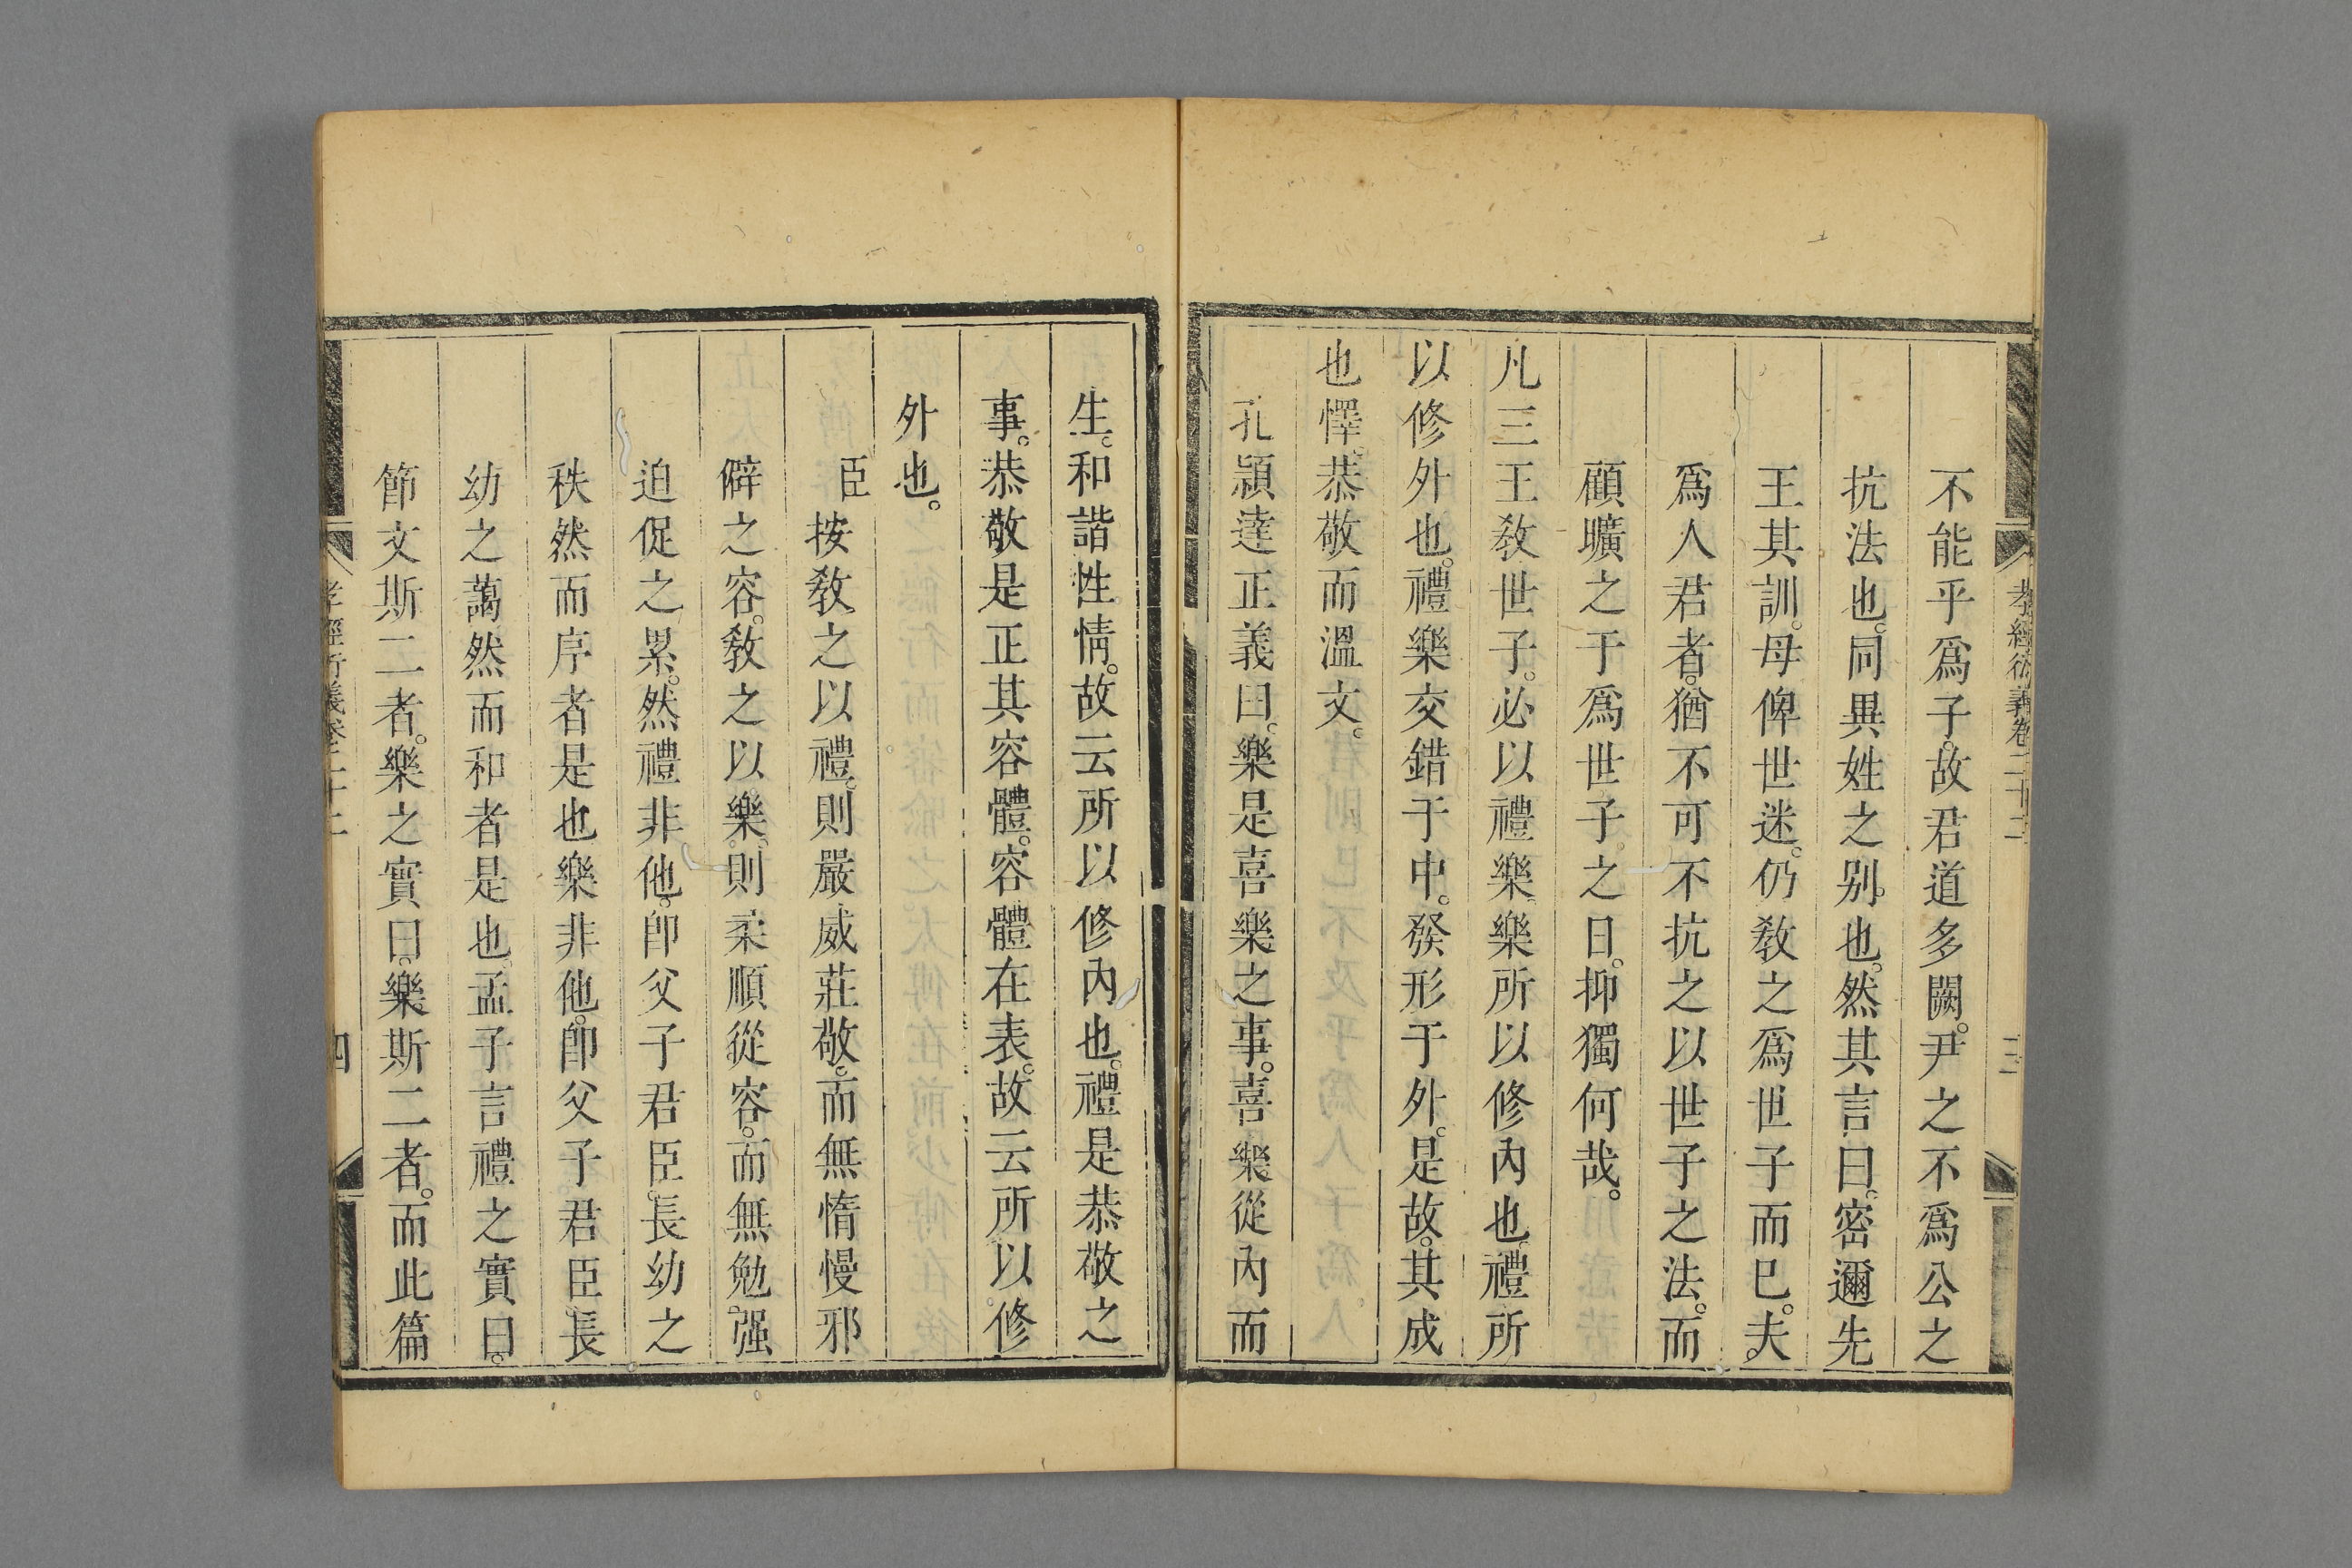 孝經衍義卷二十二
三
不能乎爲子。故君道多闕。尹之不爲公之
抗法也。同異姓之別也。然其言曰。密邇先
王其訓。毋俾世迷。仍敎之爲世子而巳。夫。
爲人君者。猶不可不抗之以世子之法。而
顧曠之于爲世子之日。抑獨何哉。
凡三王敎世子。必以禮樂樂所以修內也。禮所
以修外也。禮樂交錯于中。發形于外。是故。其成
也懌。恭敬而溫文。
孔頴達正義曰。樂是喜樂之事。喜樂從內而
生。和諧性情。故云所以修內也。禮是恭敬之
事。恭敬是正其容體。容體在表。故云所以修
外也。
臣按敎之以禮。則嚴威莊敬。而無惰慢邪
僻之容。敎之以樂。則柔順從容。而無勉强
迫促之累。然禮非他。卽父子君臣。長幼之
秩然而序者是也樂非他。卽父子君臣長
幼之藹然而和者是也。孟子言禮之實曰。
節文斯二者。樂之實曰。樂斯二者。而此篇
孝經衍義卷二十二
四